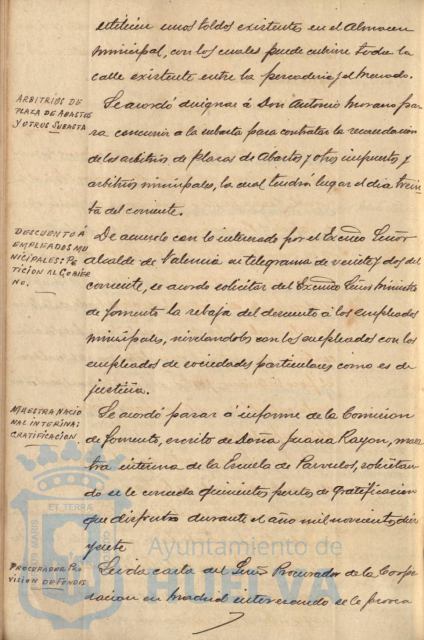 existen unos toldos existentes en el Almacen
municipal, con los cuales puede cubrirse toda la
calle existente entre la pescaderia y el mercado.
ARBITRIOS DE
PLAZA DE ABASTOS
Y OTROS SUBASTA
Se acordó designar á Don Antonio Morano pa-
ra concurrir a la subasta para contratar la recaudación
de los arbitrios de plazas de Abastos y otros impuestos y
arbitrios municipales, la cual tendrá lugar el dia trein-
ta del corriente.
DESCUENTO Á
EMPLEADOS MU
NICIPALES: PE-
TICION AL GOBIER
NO.
De acuerdo con lo interesado por el Excmo Señor
alcalde de Valencia en telegrama de veinte y dos del
corriente, se acordo solicitar del Excmo Señor Ministro
de fomento la rebaja del descuento á los empleados
municipales, nivelandolos con los empleados con los
empleados de sociedades particulares como es de
justicia.
MAESTRA NACIO
NAL INTERINA:
GRATIFICACION
Se acordó pasar á informe de la Comision
de fomento, escrito de Doña Juana Rayon, maes-
tra interina de la Escuela de Parvulos, solicitan-
do se le conceda quinientas pesetas de gratificacion
que disfruto durante el año mil novecientos diez
y siete
PROCURADOR PRO
VISION DE FONDOS
Leida carta del Señor Procurador de la Corpo-
racion en Madrid interesando se le provea
SUS MARIS
ET TERRÆ
CUSTODIO
Ayuntamiento de
HUELVA